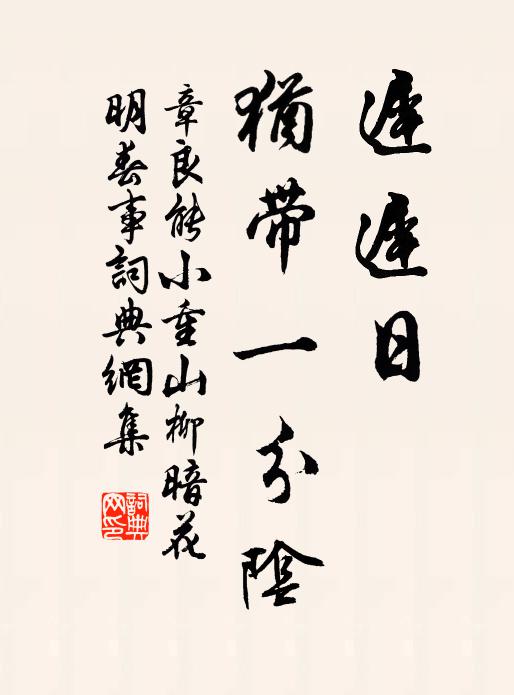 遲遲日
猶帶一分陰
章良能小重山柳暗花
明春事詞典網集
詞典網印